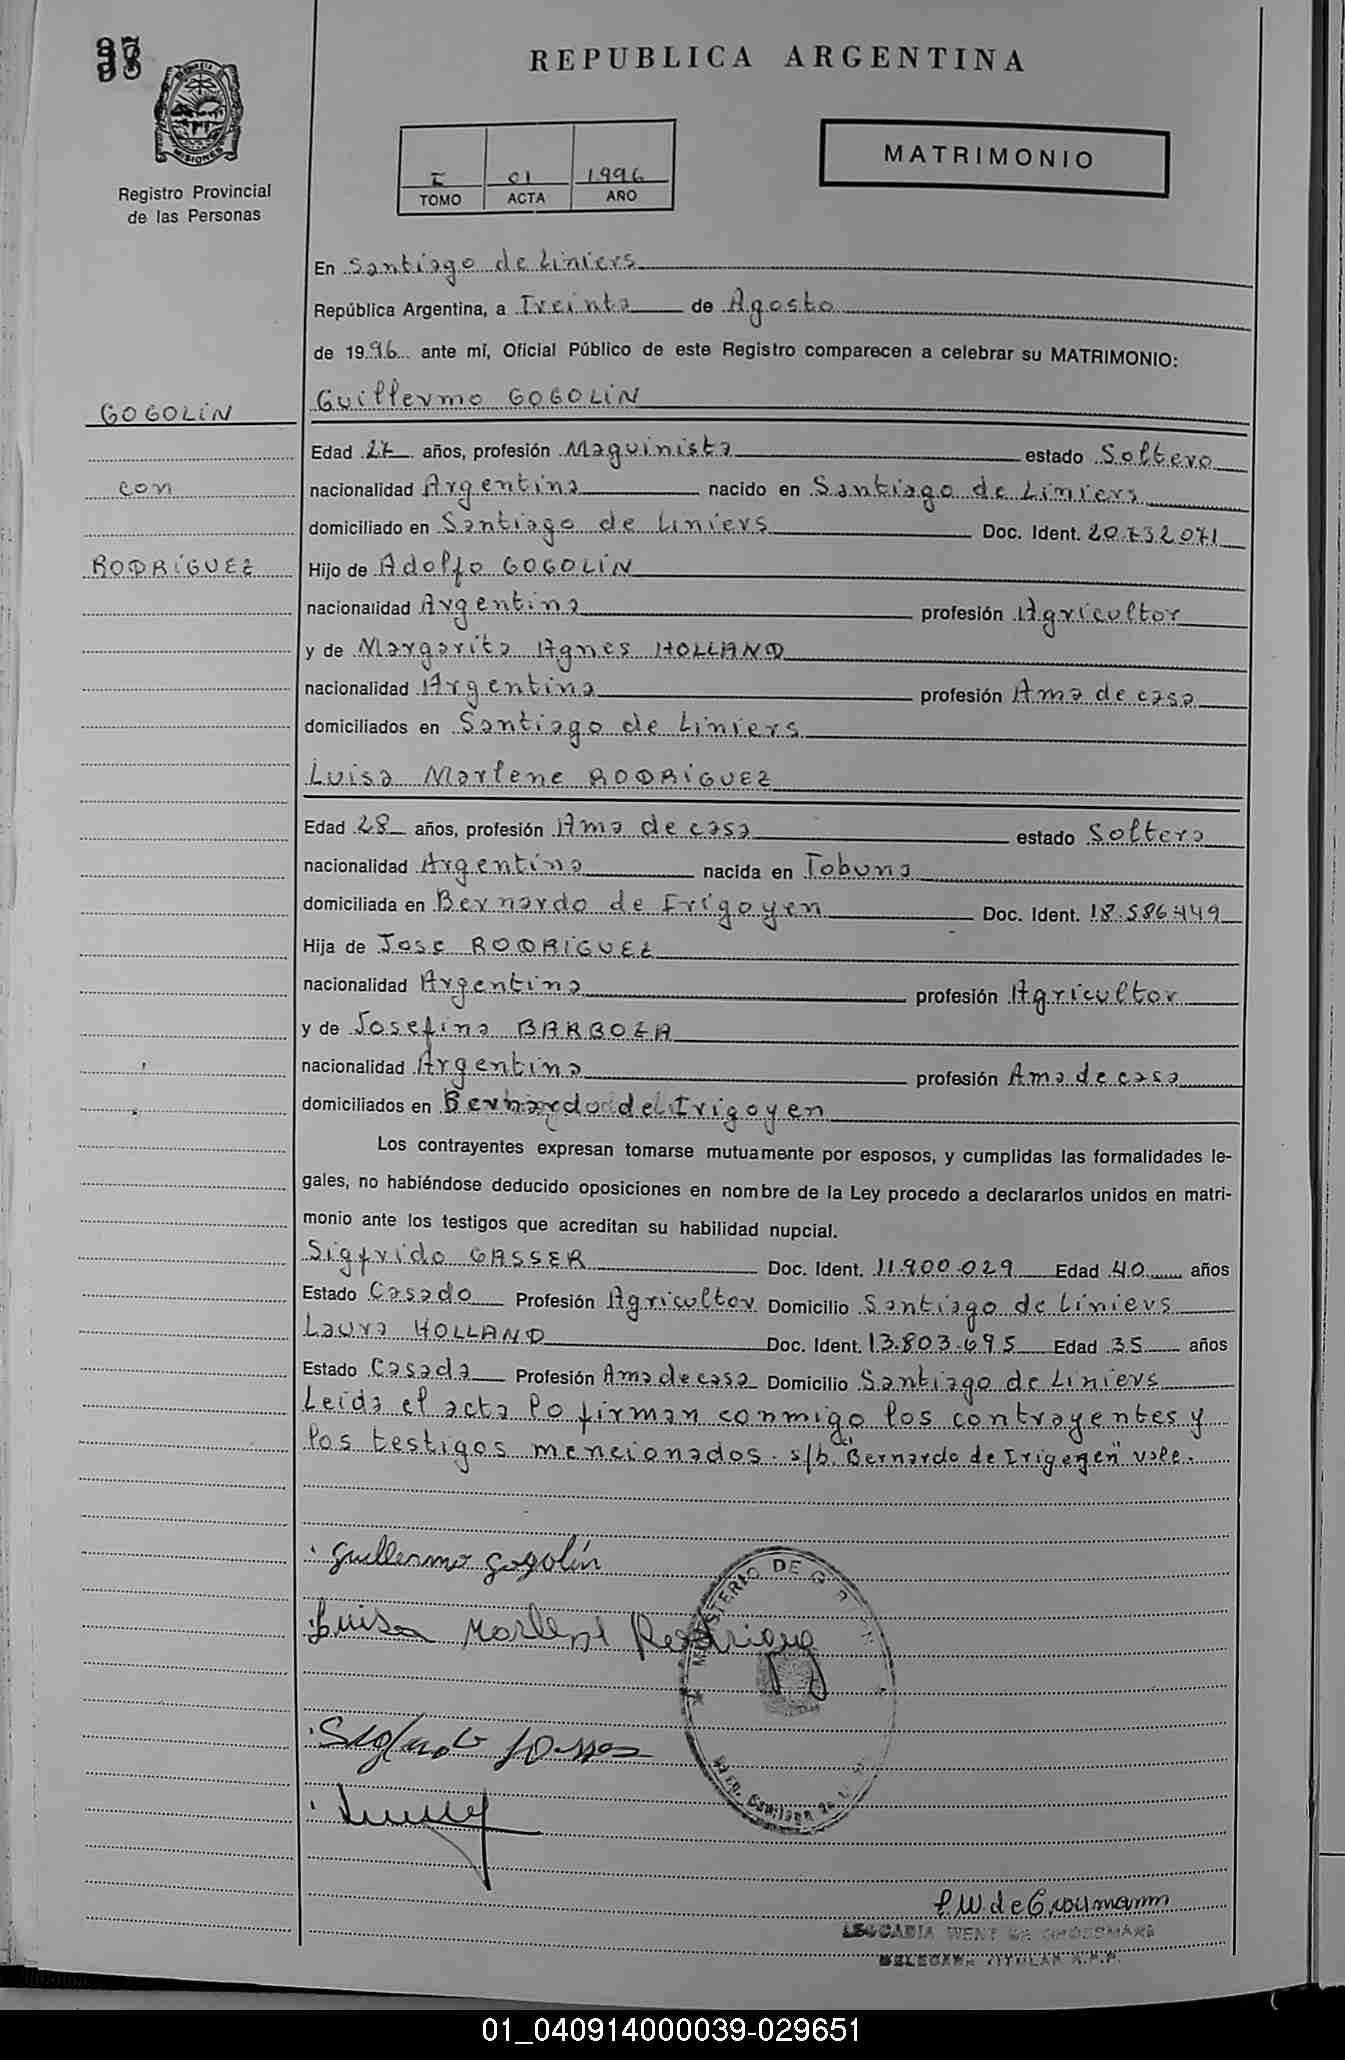 REPUBLICA ARGENTINA
MISIONES
Registro Provincial
de las Personas
I 01 1996
TOMO ACTA AÑO
MATRIMONIO
En Santiago de Liniers
República Argentina, a Treinta de Agosto
de 1996 ante mí, Oficial Público de este Registro comparecen a celebrar su MATRIMONIO:
GOGOLIN
con
RODRIGUEZ
Guillermo GOGOLIN
Edad 27 años, profesión Maquinista estado Soltero
nacionalidad Argentina nacido en Santiago de Liniers
domiciliado en Santiago de Liniers Doc. Ident. 20.732.071
Hijo de Adolfo GOGOLIN
nacionalidad Argentina profesión Agricultor
y de Margarita Agnes HOLLAND
nacionalidad Argentina profesión Ama de casa
domiciliados en Santiago de Liniers
Luisa Marlene RODRIGUEZ
Edad 28 años, profesión Ama de casa estado Soltera
nacionalidad Argentina nacida en Tobuna
domiciliada en Bernardo de Irigoyen Doc. Ident. 18.586.449
Hija de Jose RODRIGUEZ
nacionalidad Argentina profesión Agricultor
y de Josefina BARBOZA
nacionalidad Argentina profesión Ama de casa
domiciliados en Bernardo de Irigoyen
Los contrayentes expresan tomarse mutuamente por esposos, y cumplidas las formalidades le-
gales, no habiéndose deducido oposiciones en nombre de la Ley procedo a declararlos unidos en matri-
monio ante los testigos que acreditan su habilidad nupcial.
Sigfrido GASSER Doc. Ident. 11.900.029 Edad 40 años
Estado Casado Profesión Agricultor Domicilio Santiago de Liniers
Laura HOLLAND Doc. Ident. 13.803.695 Edad 35 años
Estado Casada Profesión Ama de casa Domicilio Santiago de Liniers
Leida el acta lo firman conmigo los contrayentes y
los testigos mencionados. s/b. "Bernardo de Irigoyen" vale.
Guillermo Gogolín
Luisa Marlene Rodrigue
MINISTERIO DE
L.W. de Grosmann
LEOCADIA WENT DE GROSSMANN
DELEGADA TITULAR R.P.P.
01_040914000039-029651